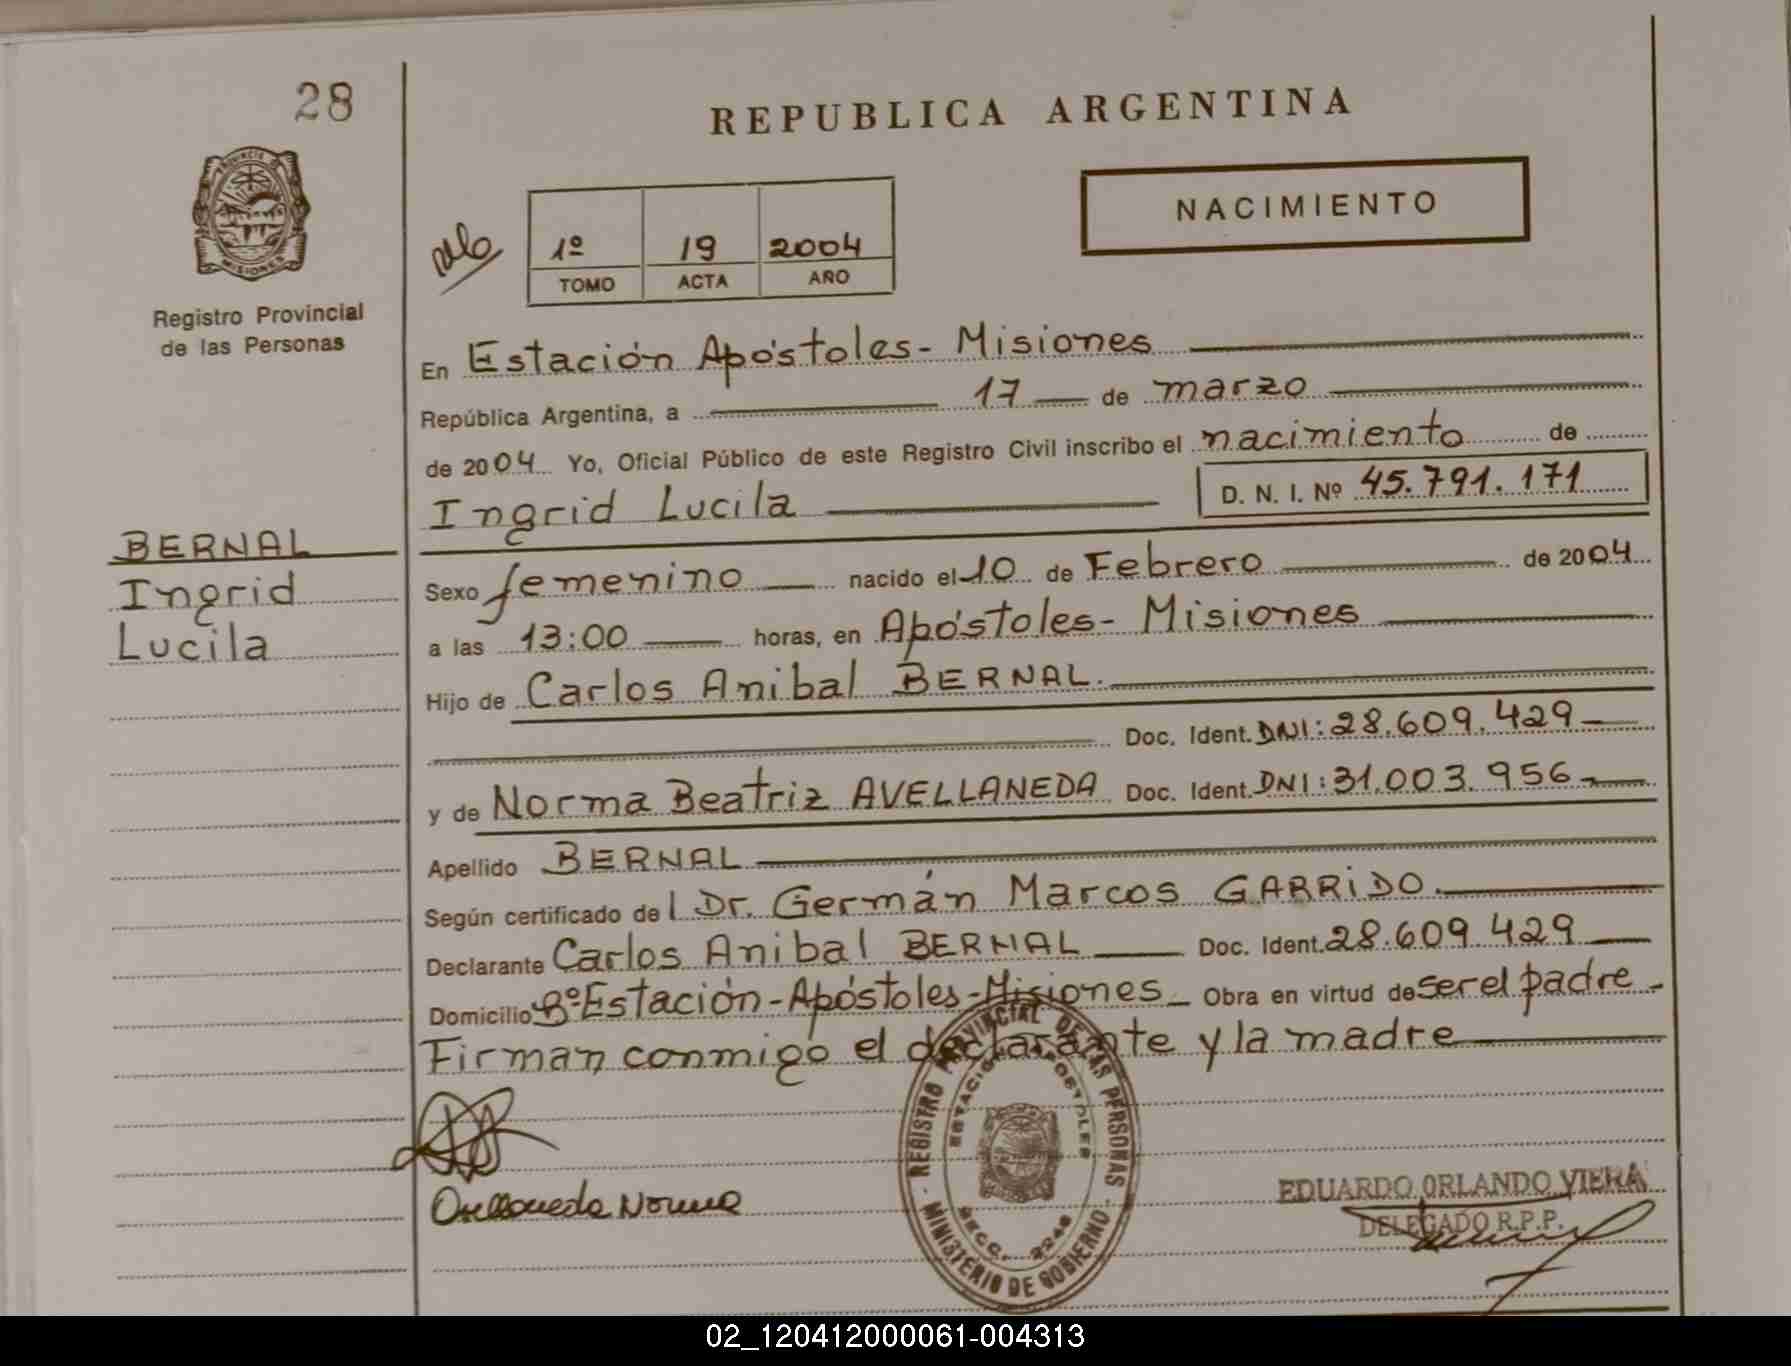 28
REPUBLICA ARGENTINA
NACIMIENTO
1º 19 2004
TOMO ACTA AÑO
PROVINCIA DE
MISIONES
Registro Provincial
de las Personas
En Estación Apóstoles - Misiones
República Argentina, a 17 de marzo
de 2004 Yo, Oficial Público de este Registro Civil inscribo el nacimiento de
Ingrid Lucila D. N. I. Nº 45.791.171
BERNAL
Ingrid
Lucila
Sexo femenino nacido el 10 de Febrero de 2004
a las 13:00 horas, en Apóstoles - Misiones
Hijo de Carlos Anibal BERNAL.
Doc. Ident. DNI: 28.609.429
y de Norma Beatriz AVELLANEDA Doc. Ident. DNI: 31.003.956
Apellido BERNAL
Según certificado del Dr. Germán Marcos GARRIDO.
Declarante Carlos Anibal BERNAL Doc. Ident. 28.609.429
Domicilio Bº Estación - Apóstoles - Misiones Obra en virtud de ser el padre
Firman conmigo el declarante y la madre
REGISTRO PROVINCIAL DE LAS PERSONAS
ESTACION APOSTOLES
SECC. 2246
MINISTERIO DE GOBIERNO
Avellaneda Norma
EDUARDO ORLANDO VIERA
DELEGADO R.P.P.
02_120412000061-004313